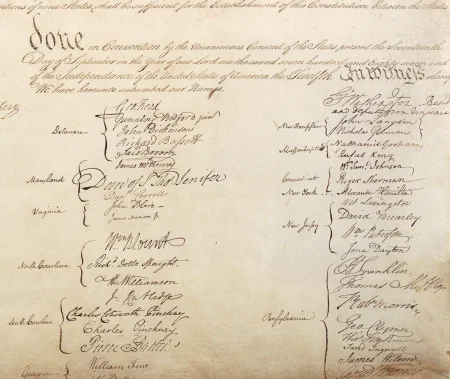 tions of nine States, shall be sufficient for the Establishment of this Constitution between the States
done in Convention by the Unanimous Consent of the States present the Seventeenth
Day of September in the Year of our Lord one thousand seven hundred and Eighty seven and
of the Independance of the United States of America the Twelfth In Witness
We have hereunto subscribed our Names,
Delaware
Geo: Read
Gunning Bedford jun
John Dickinson
Richard Bassett
Jaco: Broom
James McHenry
Maryland
Dan of St Thos Jenifer
Danl Carroll
Virginia
John Blair
North Carolina
Wm Blount
Richd. Dobbs Spaight.
Hu Williamson
South Carolina
J. Rutledge
Charles Cotesworth Pinckney
Charles Pinckney
Pierce Butler
Georgia
William Few
Go. Washington Presidt
and deputy from Virginia
New Hampshire
John Langdon
Nicholas Gilman
Massachusetts
Nathaniel Gorham
Rufus King
Connecticut
Wm. Saml. Johnson
Roger Sherman
New York
Alexander Hamilton
New Jersey
Wil: Livingston
David Brearley
Wm Paterson
Jona: Dayton
Pensylvania
B Franklin
Thomas Mifflin
Robt Morris
Geo. Clymer
Thos. FitzSimons
Jared Ingersoll
James Wilson